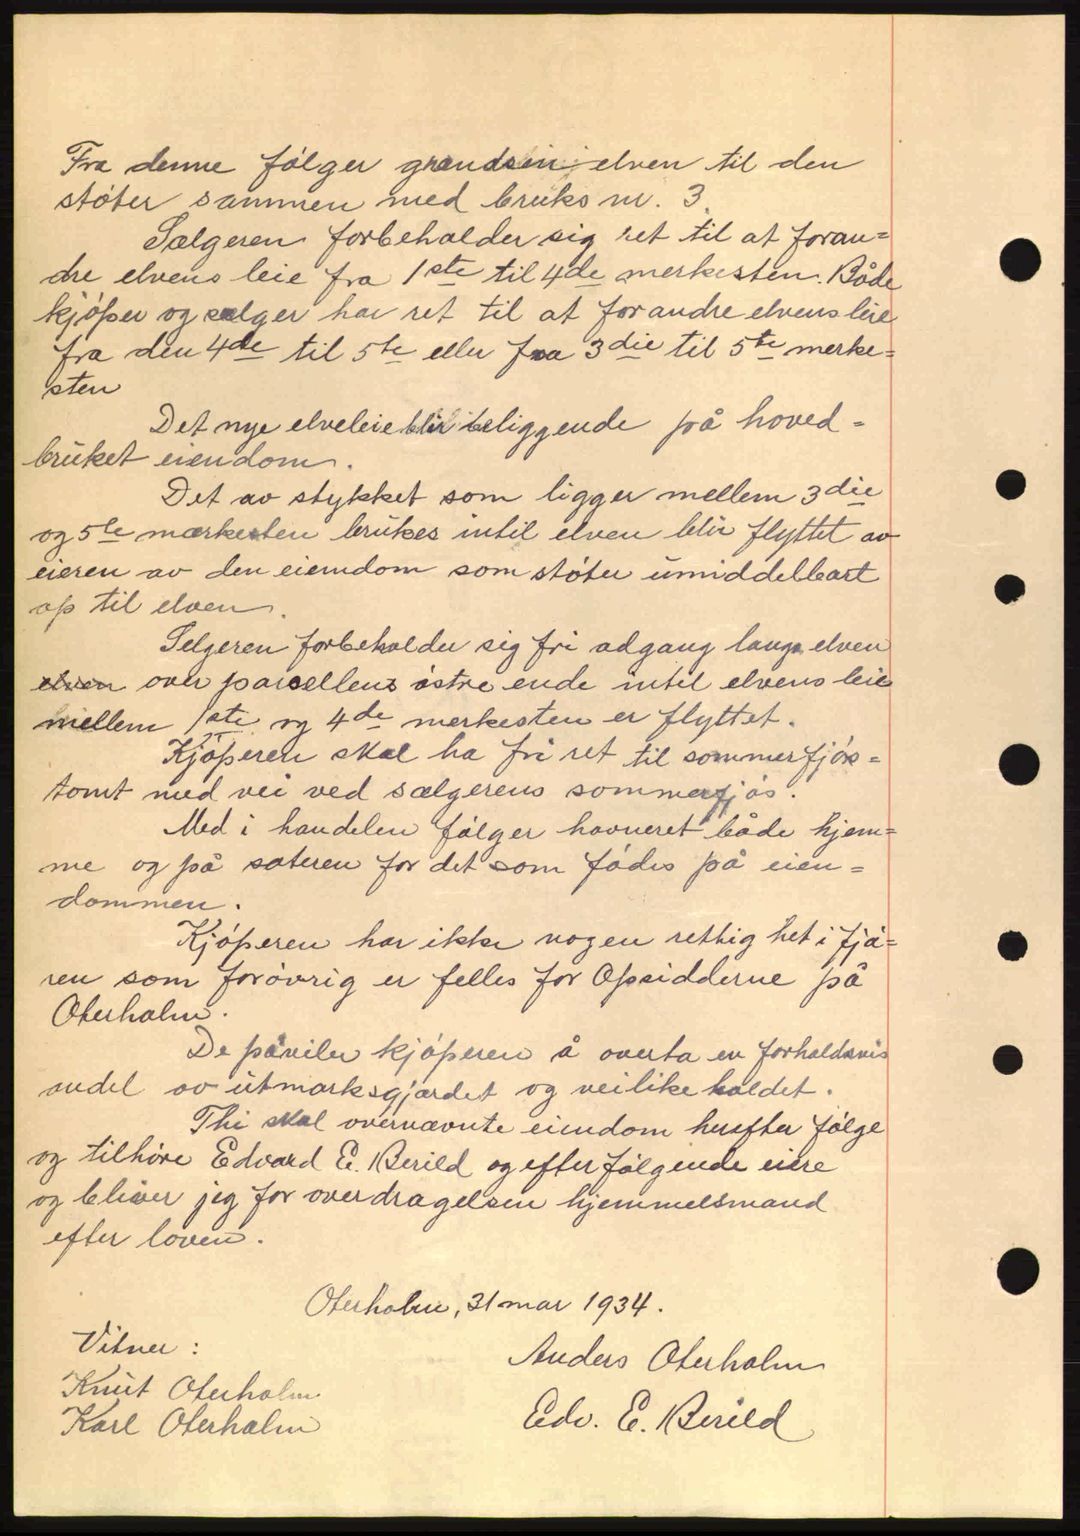 Fra denne følger grændsen elven til den
støter sammen med bruks nr. 3.
Sælgeren forbeholder sig ret til at foran=
dre elvens leie fra 1ste til 4de merkesten. Både
kjøper og sælger har ret til at forandre elvens leie
fra den 4de til 5te eller fra 3die til 5te merke=
sten
Det nye elveleie blir beliggende på hoved=
bruket eiendom.
Det av stykket som ligger mellem 3die
og 5te mærkesten brukes intil elven blir flyttet av
eieren av den eiendom som støter umiddelbart
op til elven.
Selgeren forbeholder sig fri adgang langs elven
elven over parcellens østre ende intil elvens leie
mellem 1ste og 4de merkesten er flyttet.
Kjøperen skal ha fri ret til sommerfjøs=
tomt med vei ved sælgerens sommerfjøs.
Med i handelen følger havneret både hjem=
me og på sæteren for det som fødes på eien=
dommen.
Kjøperen har ikke nogen rettighet i fjæ=
ren som forøvrig er felles for Opsidderne på
Oterholm.
De påviler kjøperen å overta en forholdsvis
andel av utmarksgjærdet og veilikeholdet.
Thi skal overnævnte eiendom herefter følge
og tilhøre Edvard E. Berild og efterfølgende eiere
og bliver jeg for overdragelsen hjemmelsmand
efter loven.
Oterholm, 31 mar 1934.
Vitner:
Anders Oterholm
Knut Oterholm
Karl Oterholm
Edv. E. Berild